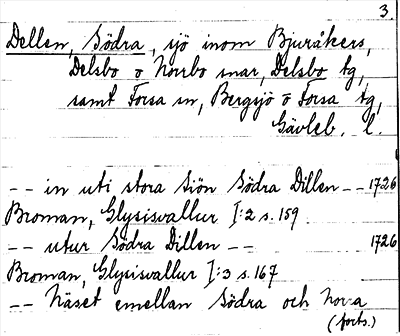 3.
Dellen, Södra, sjö inom Bjuråkers,
Delsbo o Norrbo snar, Delsbo tg,
samt Forsa sn, Bergsjö o Forsa tg,
Gävleb. l.
-- in uti stora Siön Södra Dillen -- 1726
Broman, Glysisvallur I:2 s. 159
-- utur Södra Dillen -- 1726
Broman, Glysisvallur I:3 s. 167
-- Näset emellan Södra och Norra
(forts.)